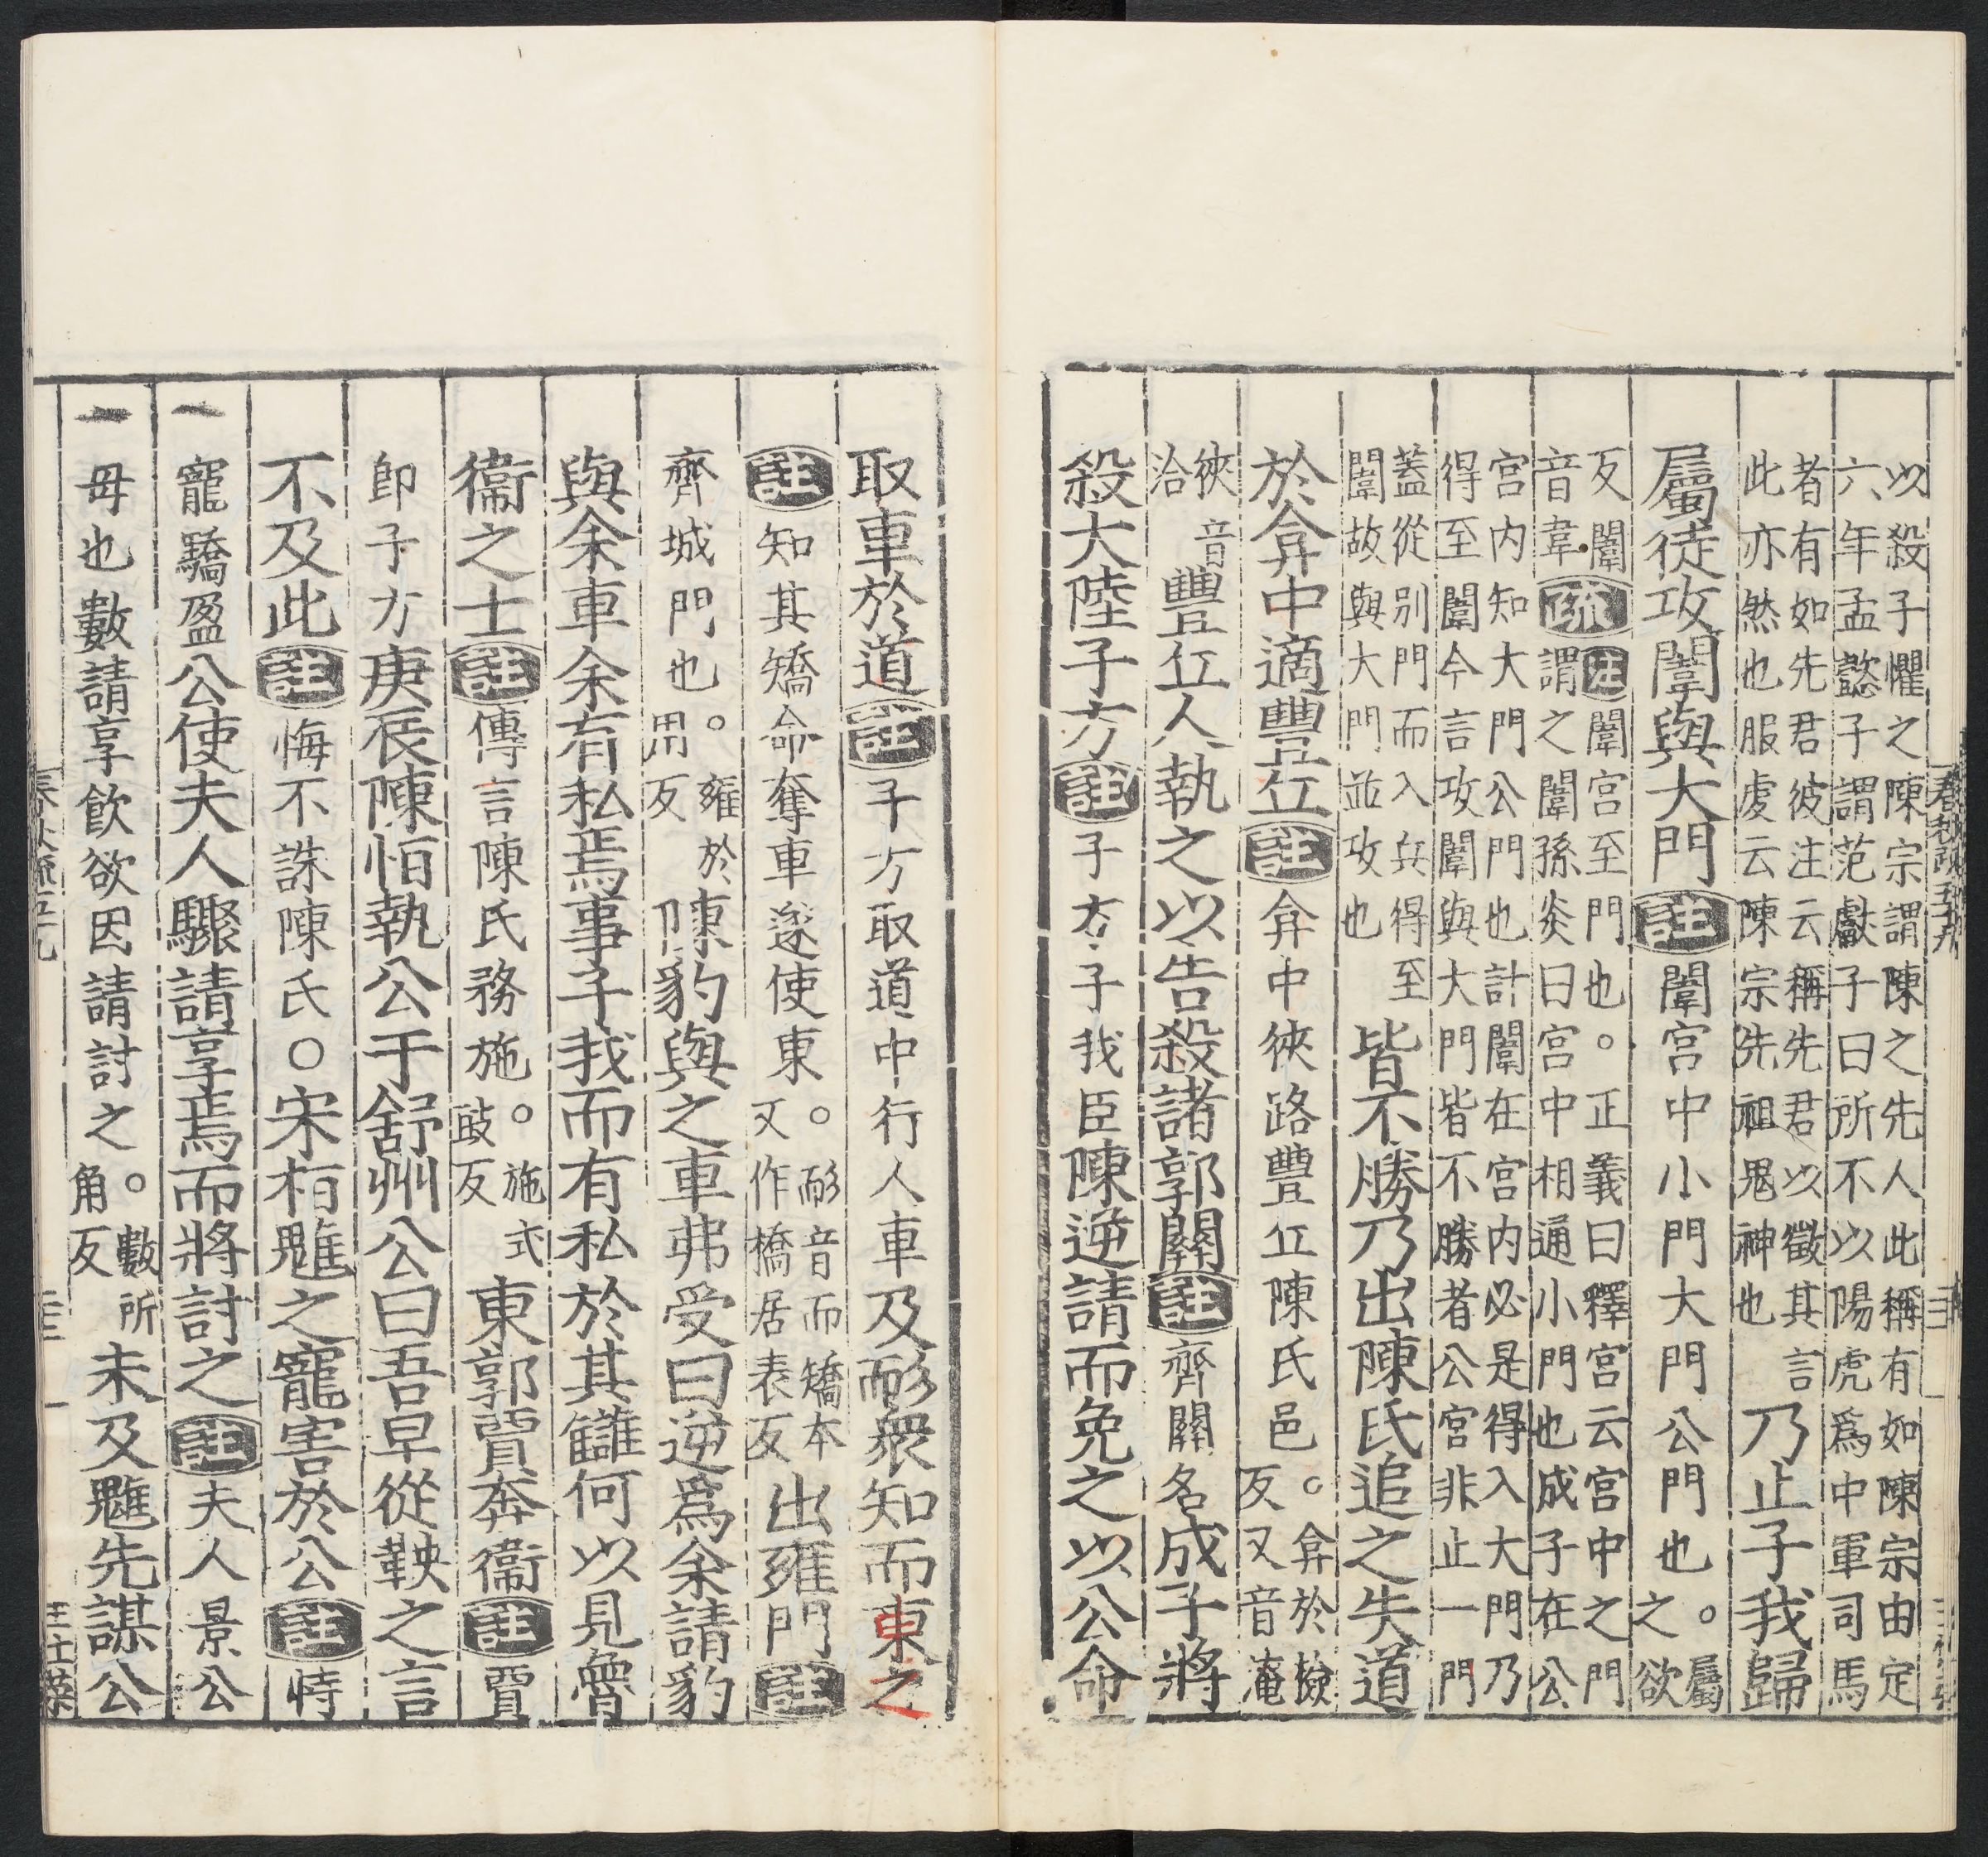 春秋疏五十九
以殺子懼之陳宗謂陳之先人此稱有如陳宗由定
六年孟懿子謂范獻子曰所不以陽虎爲中軍司馬
者有如先君彼注云稱先君以徵其言
此亦然也服虔云陳宗先祖鬼神也
乃止子我歸
屬徒攻闈與大門註闈宮中小門大門公門也。屬之欲
反闈音韋疏註闈宮至門也。正義曰釋宮云宮中之門
謂之闈孫炎曰宮中相通小門也成子在公
宮内知大門公門也計闈在宮内必是得入大門乃
得至闈今言攻闈與大門皆不勝者公宮非止一門
蓋從別門而入兵得至
闈故與大門並攻也
皆不勝乃出陳氏追之失道
於弇中適豐丘註弇中狹路豐丘陳氏邑。弇於檢反又音淹
狹音洽豐丘人執之以告殺諸郭關註齊關名成子將
殺大陸子方註子方子我臣陳逆請而免之以公命
取車於道註子方取道中行人車及耏衆知而東之
註知其矯命奪車逐使東。耏音而矯本又作橋居表反出雍門註
齊城門也。雍於用反陳豹與之車弗受曰逆爲余請豹
與余車余有私焉事子我而有私於其讎何以見魯
衞之士註傳言陳氏務施。施式豉反東郭賈奔衞註賈
即子方庚辰陳恒執公于舒州公曰吾早從鞅之言
不及此註悔不誅陳氏○宋桓魋之寵害於公註恃
寵驕盈公使夫人驟請享焉而將討之註夫人景公
母也數請享飲欲因請討之。數所角反未及魋先謀公